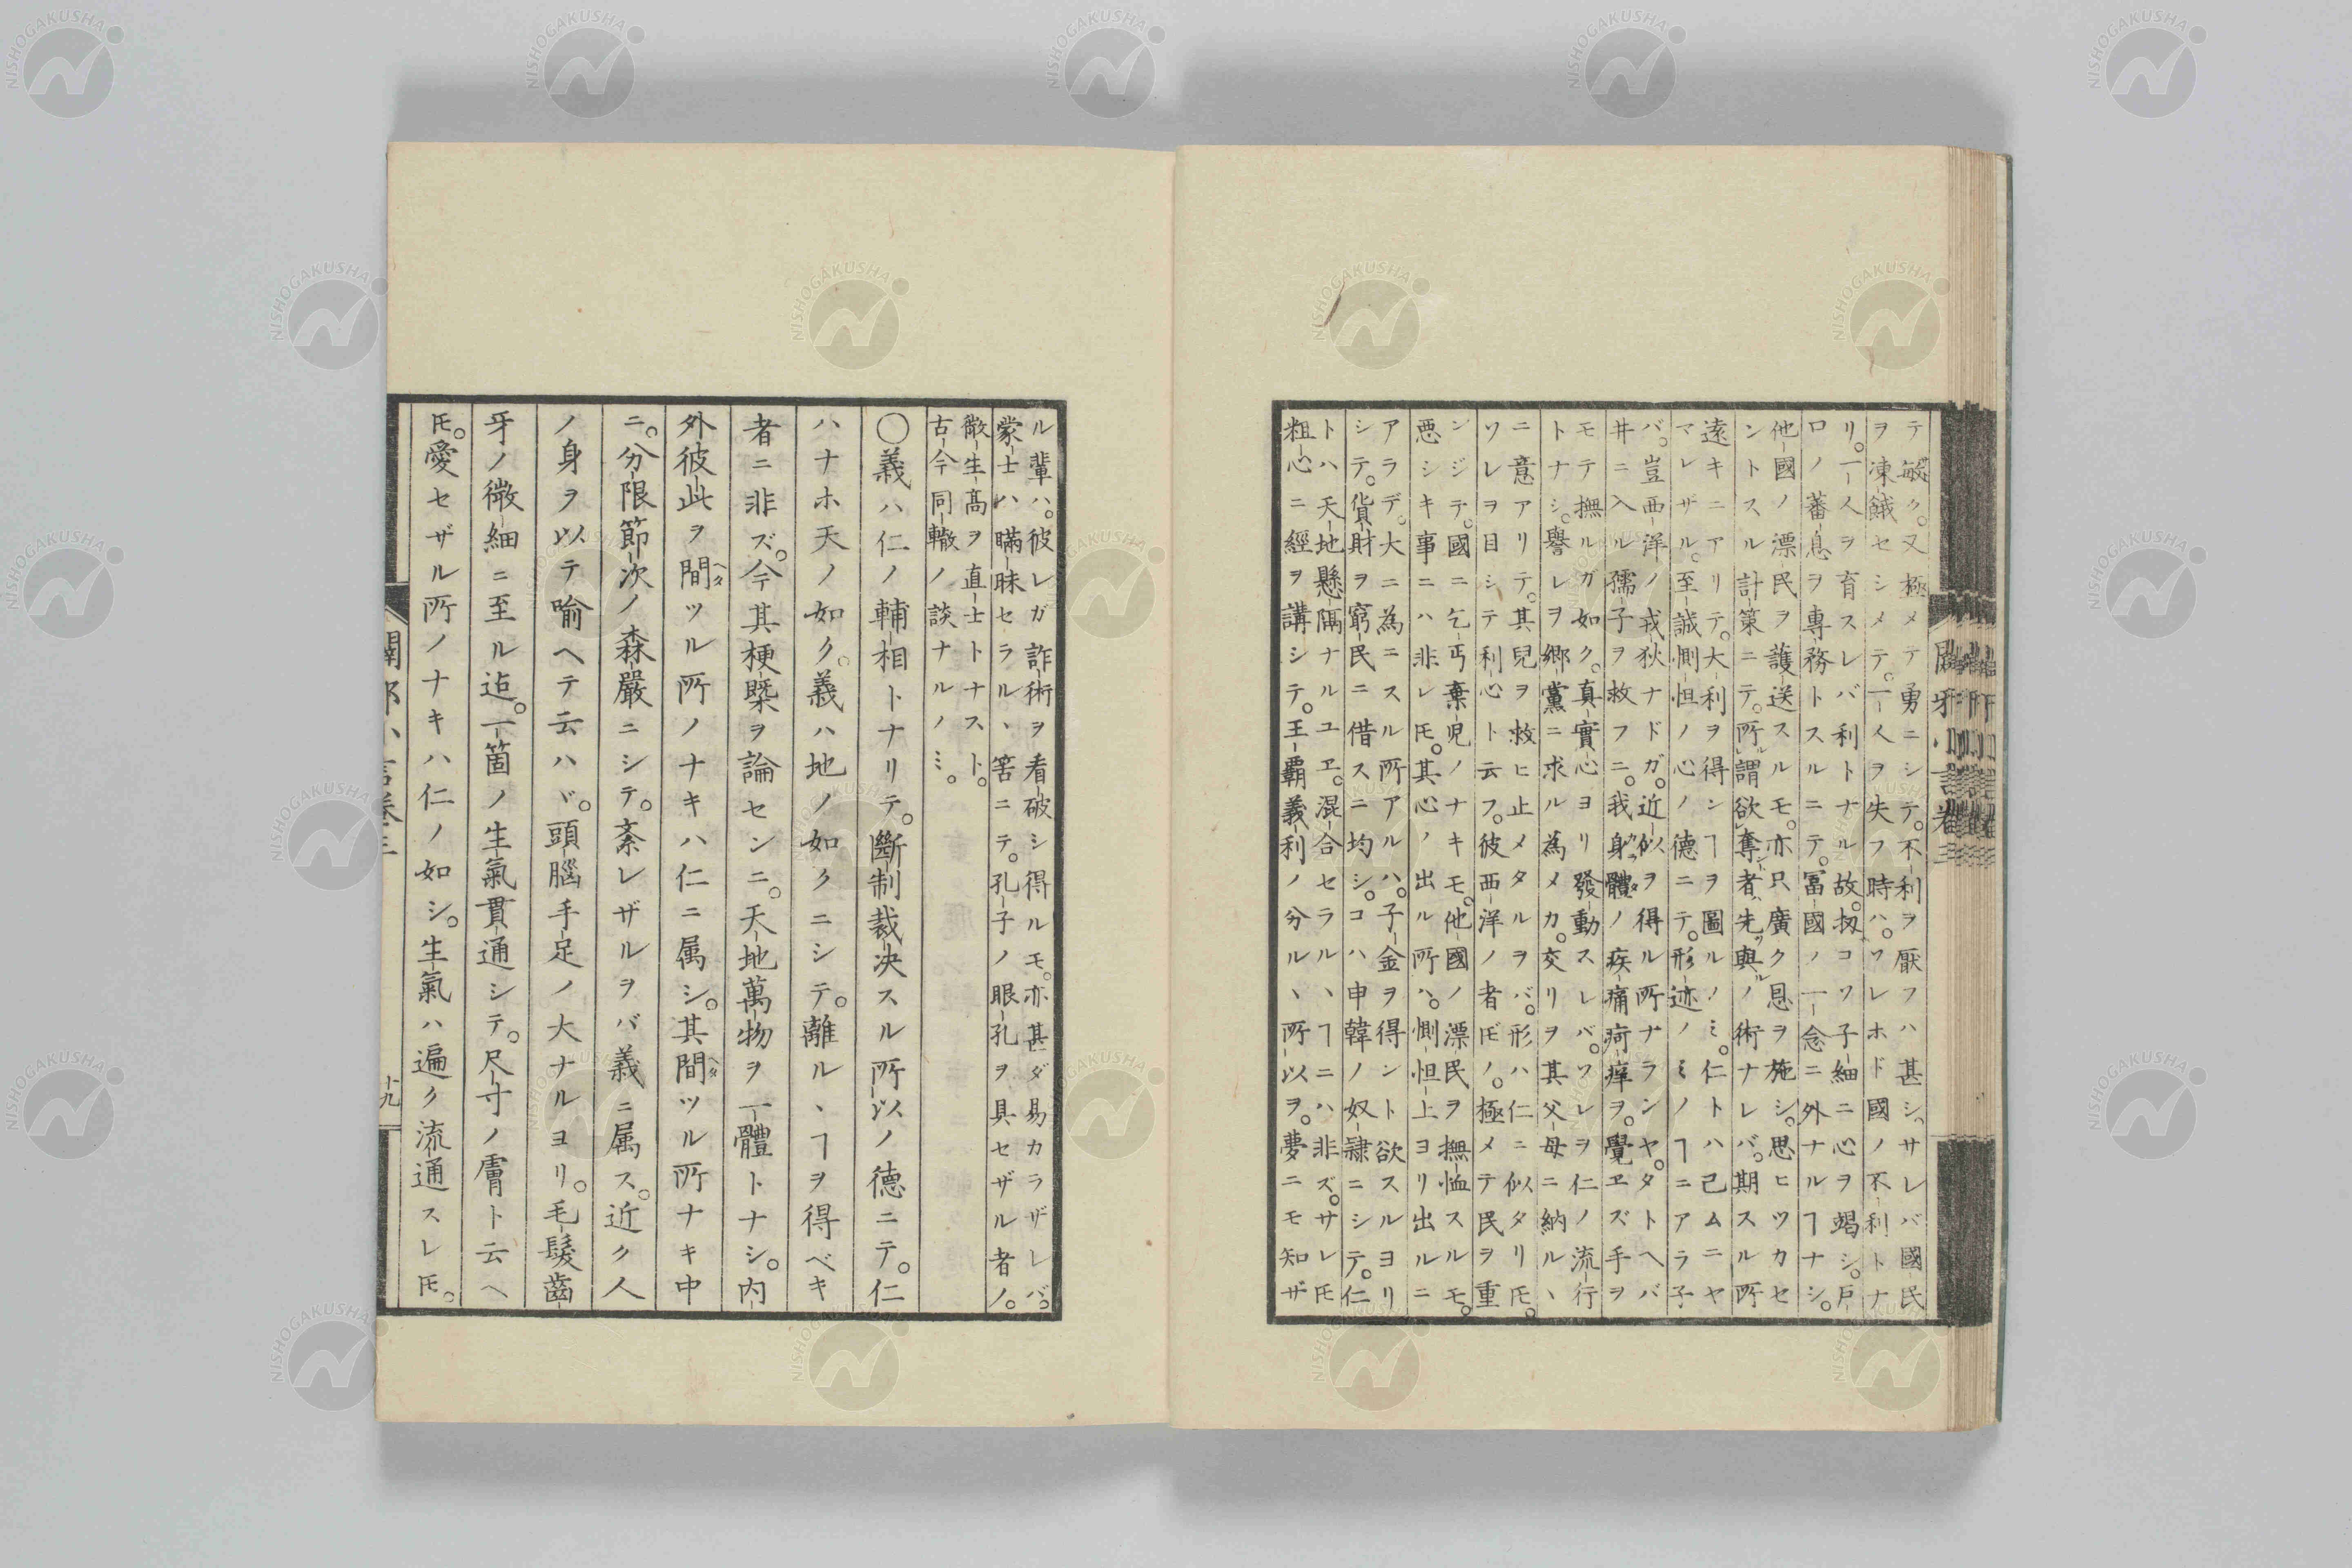 テ敏ク。又極メテ勇ニシテ。不利ヲ厭フハ甚シ。サレバ國民
ヲ凍餓セシメテ。一人ヲ失フ時ハ。ワレホド國ノ不利トナ
リ。一人ヲ育スレバ利トナル故。扨コソ子細ニ心ヲ竭シ。戸
口ノ蕃息ヲ專務トスルニテ。冨國ノ一念ニ外ナルヿナシ。
他國ノ漂民ヲ護送スルモ。亦只廣ク恩ヲ施シ。思ヒツカセ
ントスル計策ニテ。所謂欲奪者先與ノ術ナレバ。期スル所
遠キニアリテ。大利ヲ得ンヿヲ圖ルノミ。仁トハ己ムニヤ
マレザル。至誠惻怛ノ心ノ德ニテ。形迹ノミノヿニアラ子
バ。豈西洋ノ戎狄ナドガ。近似ヲ得ル所ナランヤ。タトヘバ
井ニ入ル孺子ヲ救フニ。我身體ノ疾痛疴痒ヲ。覺ヱズ手ヲ
モテ撫ルガ如ク。真實心ヨリ發動スレバ。ワレヲ仁ノ流行
トナシ。譽レヲ鄉黨ニ求ル為メカ。交リヲ其父母ニ納ルヽ
ニ意アリテ。其兒ヲ救ヒ止メタルヲバ。形ハ仁ニ似タリ𪜈。
ソレヲ目シテ利心ト云フ。彼西洋ノ者𪜈ノ。極メテ民ヲ重
ンジテ。國ニ乞丐棄兒ノナキモ。他國ノ漂民ヲ撫恤スルモ。
悪シキ事ニハ非レ𪜈。其心ノ出ル所ハ。惻怛上ヨリ出ルニ
アラデ。大ニ為ニスル所アルハ。子金ヲ得ント欲スルヨリ
シテ。貨財ヲ窮民ニ借スニ均シ。コハ申韓ノ奴隷ニシテ。仁
トハ天地懸隔ナルユヱ。混合セラルヽヿニハ非ズ。サレ𪜈
粗心ニ經ヲ講シテ。王霸義利ノ分ルヽ所以ヲ。夢ニモ知ザ
ル輩ハ。彼レガ詐術ヲ看破シ得ルモ。亦甚ダ易カラザレバ。
蒙士ハ瞞昧セラルヽ筈ニテ。孔子ノ眼孔ヲ具セザル者ノ。
微生高ヲ直士トナスト。
古今同轍ノ談ナルノミ。
〇義ハ仁ノ輔相トナリテ。斷制裁决スル所以ノ德ニテ。仁
ハナホ天ノ如ク。義ハ地ノ如クニシテ。離ルヽヿヲ得ベキ
者ニ非ズ。今其梗槩ヲ論センニ。天地萬物ヲ一體トナシ。内
外彼此ヲ間ツル所ノナキハ仁ニ属シ。其間ツル所ナキ中
ニ。分限節次ノ森嚴ニシテ。紊レザルヲバ義ニ属ス。近ク人
ノ身ヲ以テ喻ヘテ云ハヾ。頭腦手足ノ大ナルヨリ。毛髮齒
牙ノ微細ニ至ル迠。一箇ノ生氣貫通シテ。尺寸ノ膚ト云ヘ
𪜈。愛セザル所ノナキハ仁ノ如シ。生氣ハ遍ク流通スレ𪜈。
十九